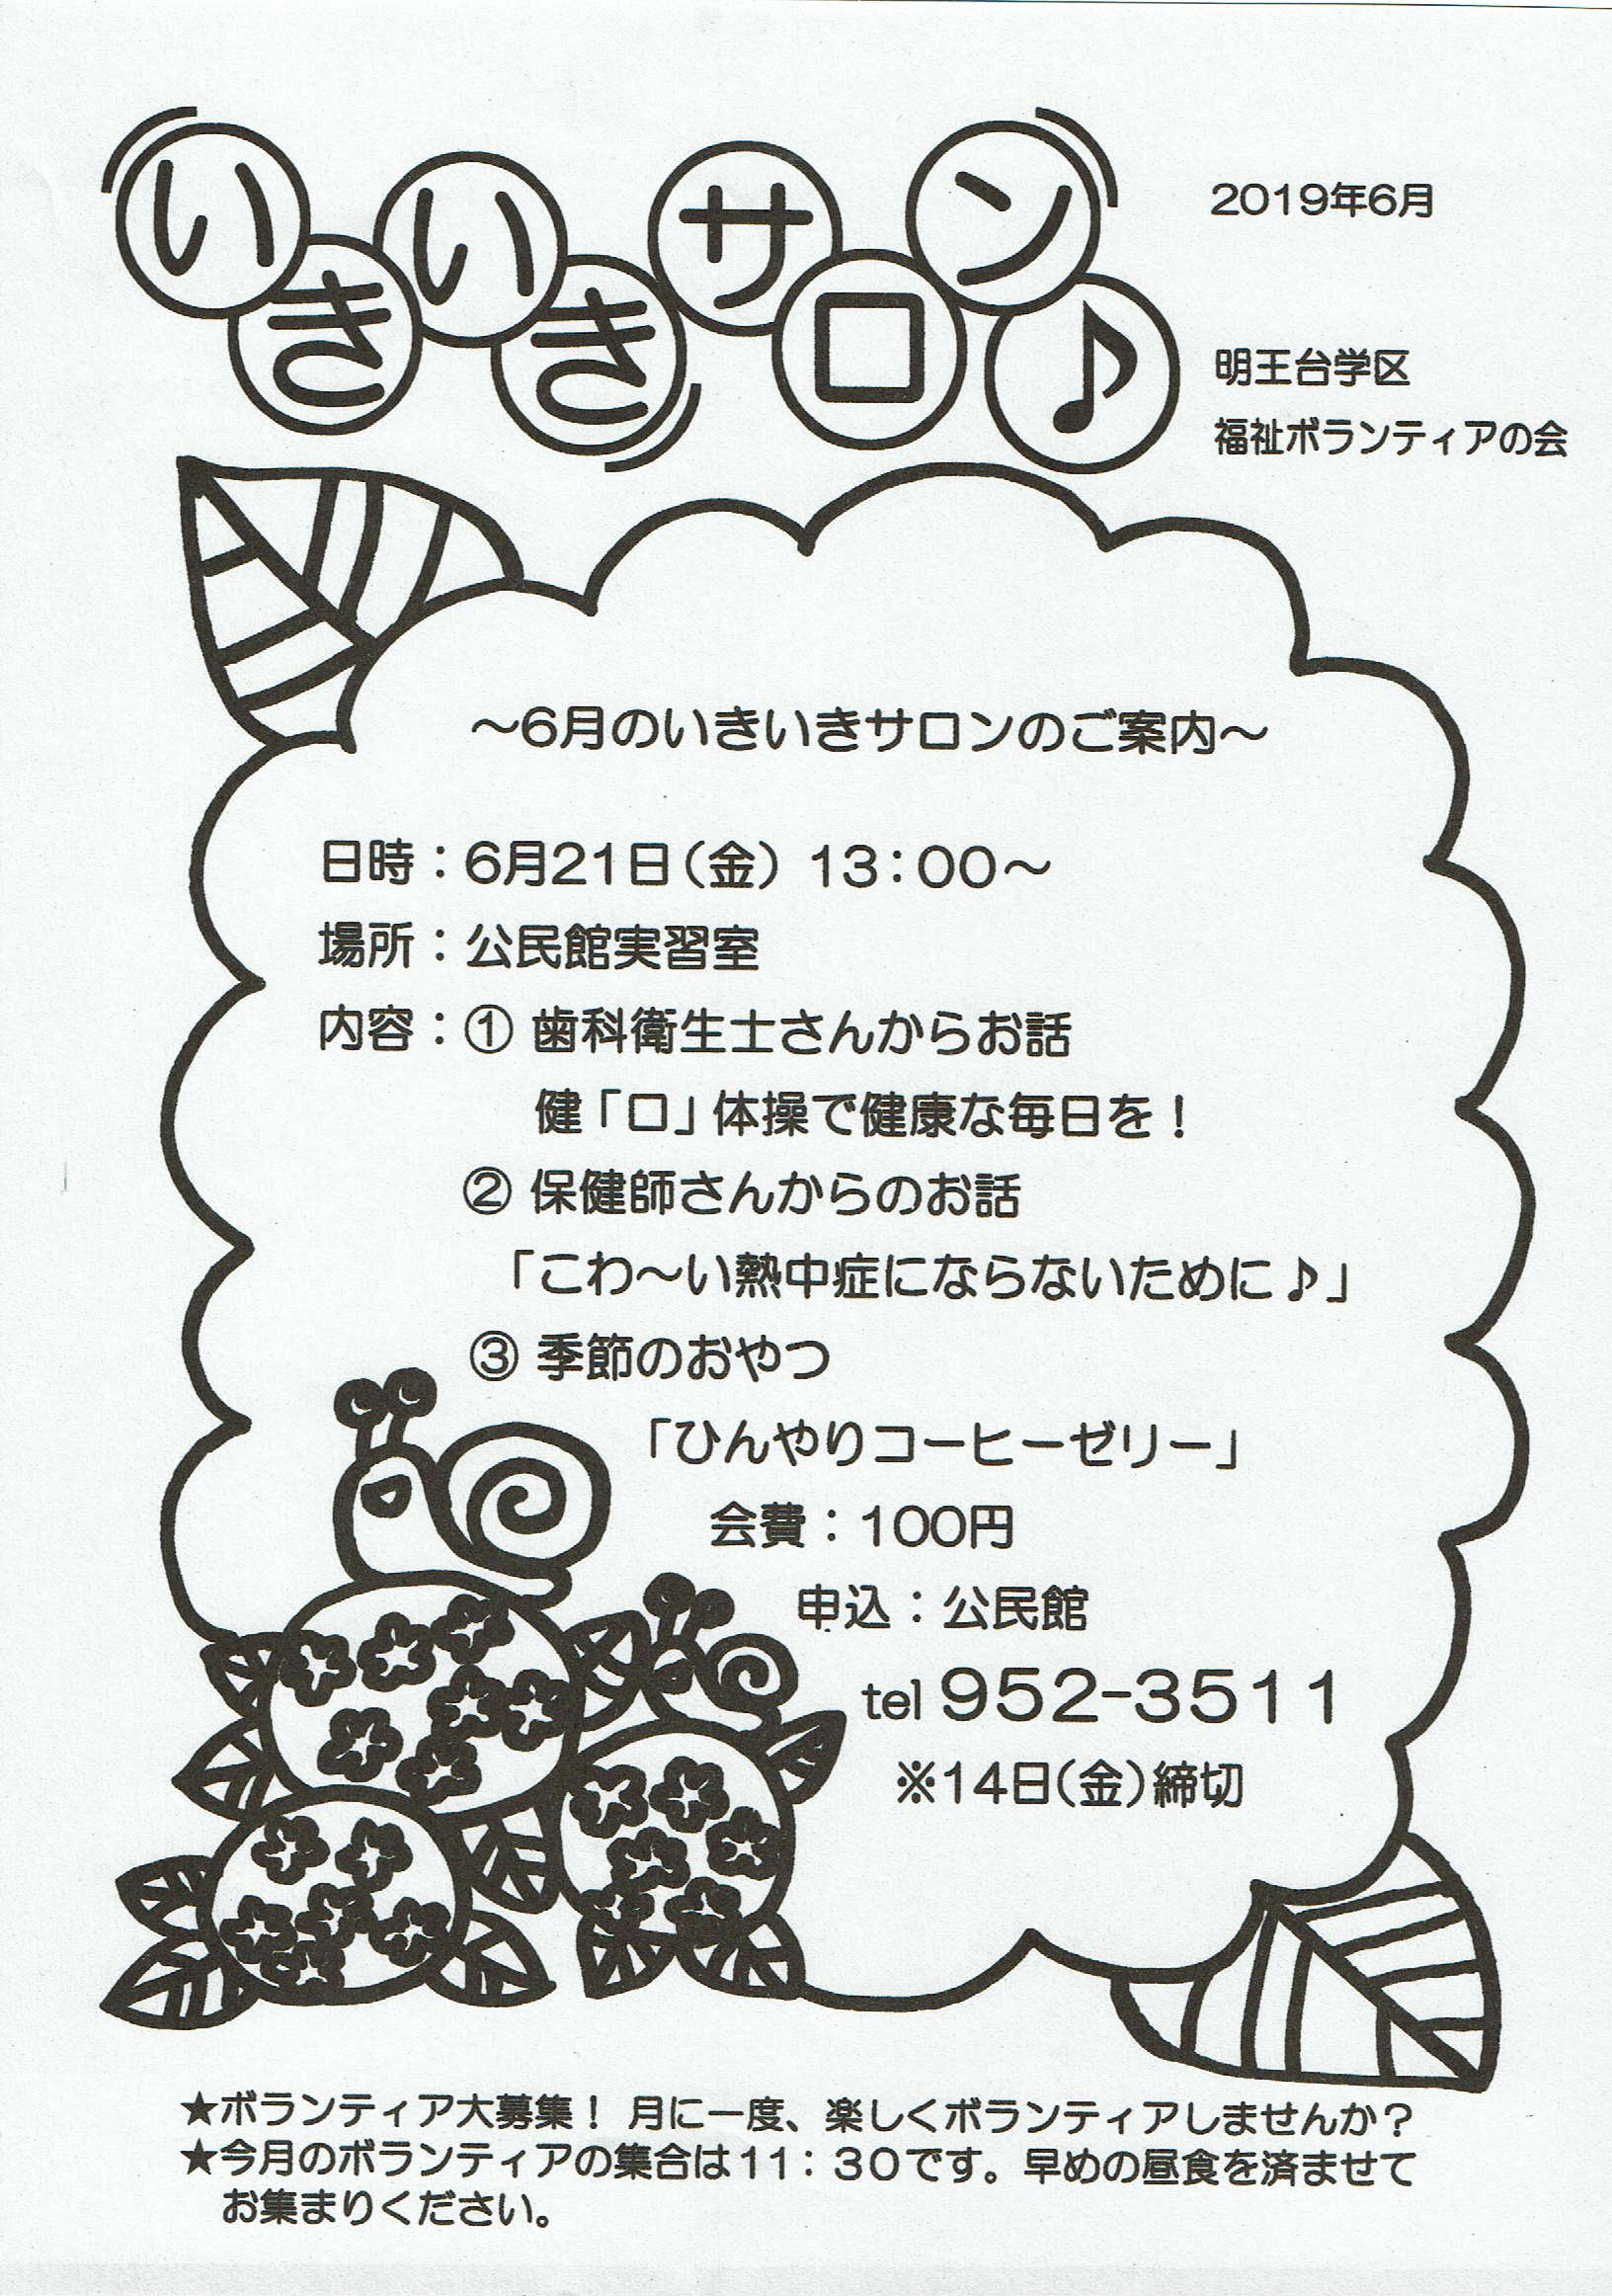 いきいきサロン♪
2019年6月
明王台学区
福祉ボランティアの会
～6月のいきいきサロンのご案内～
日時：6月21日（金）13：00～
場所：公民館実習室
内容：① 歯科衛生士さんからお話
健「口」体操で健康な毎日を！
② 保健師さんからのお話
「こわ～い熱中症にならないために♪」
③ 季節のおやつ
「ひんやりコーヒーゼリー」
会費：100円
申込：公民館
tel 952-3511
※14日（金）締切
★ボランティア大募集！ 月に一度、楽しくボランティアしませんか？
★今月のボランティアの集合は11：30です。早めの昼食を済ませて
お集まりください。